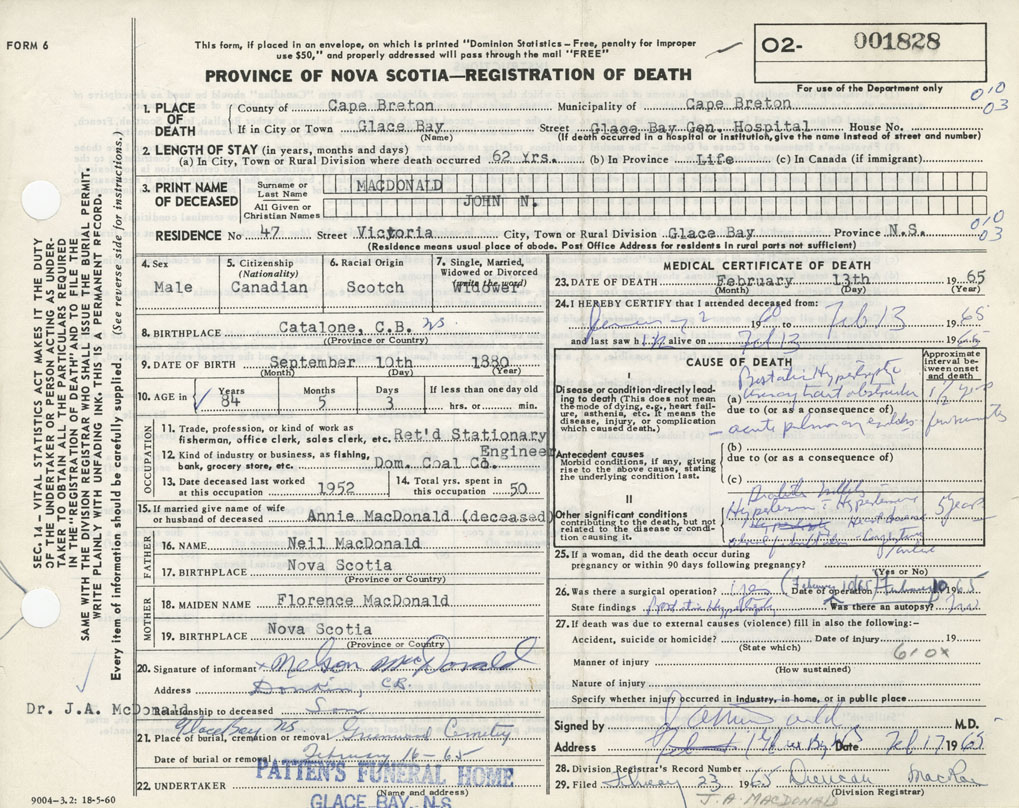 FORM 6
This form, if placed in an envelope, on which is printed "Dominion Statistics—Free, penalty for improper
use $50," and properly addressed will pass through the mail "FREE"
PROVINCE OF NOVA SCOTIA—REGISTRATION OF DEATH
O2- 001828
For use of the Department only
010
03
1. PLACE OF DEATH
County of Cape Breton Municipality of Cape Breton
If in City or Town Glace Bay Street Glace Bay Gen. Hospital House No.
(Name) (If death occurred in a hospital or institution, give the name instead of street and number)
2. LENGTH OF STAY (in years, months and days)
(a) In City, Town or Rural Division where death occurred 62 Yrs. (b) In Province Life (c) In Canada (if immigrant)
3. PRINT NAME OF DECEASED
Surname or Last Name MACDONALD
All Given or Christian Names JOHN N.
RESIDENCE No 47 Street Victoria City, Town or Rural Division Glace Bay Province N.S.
010
03
(Residence means usual place of abode. Post Office Address for residents in rural parts not sufficient)
4. Sex
Male
5. Citizenship
(Nationality)
Canadian
6. Racial Origin
Scotch
7. Single, Married,
Widowed or Divorced
(write the word)
Widower
8. BIRTHPLACE Catalone, C.B. NS
(Province or Country)
9. DATE OF BIRTH September 10th 1880
(Month) (Day) (Year)
10. AGE in Years 84 Months 5 Days 3 If less than one day old
hrs. or min.
OCCUPATION
11. Trade, profession, or kind of work as
fisherman, office clerk, sales clerk, etc. Ret'd Stationary
Engineer
12. Kind of industry or business, as fishing,
bank, grocery store, etc. Dom. Coal Co.
13. Date deceased last worked
at this occupation 1952
14. Total yrs. spent in
this occupation 50
15. If married give name of wife
or husband of deceased Annie MacDonald (deceased)
FATHER
16. NAME Neil MacDonald
17. BIRTHPLACE Nova Scotia
(Province or Country)
MOTHER
18. MAIDEN NAME Florence MacDonald
19. BIRTHPLACE Nova Scotia
(Province or Country)
20. Signature of informant Nelson McDonald
Address Donkin, CB.
Relationship to deceased Son
Dr. J.A. McDonald
Glace Bay, NS.
21. Place of burial, cremation or removal Greenwood Cemetery
Date of burial or removal February 16-65
22. UNDERTAKER PATTEN'S FUNERAL HOME
(Name and address)
GLACE BAY, N.S.
9004-3.2: 18-5-60
MEDICAL CERTIFICATE OF DEATH
23. DATE OF DEATH February 13th 1965
(Month) (Day) (Year)
24. I HEREBY CERTIFY that I attended deceased from:
19 60 to Feb 13 1965
and last saw him alive on Feb 13 1965
CAUSE OF DEATH
Approximate
interval be-
tween onset
and death
I
Disease or condition directly lead-
ing to death (This does not mean
the mode of dying, e.g., heart fail-
ure, asthenia, etc. It means the
disease, injury, or complication
which caused death.)
(a) Urinary tract obstruction
due to (or as a consequence of)
- acute pulmonary few minutes
Antecedent causes
Morbid conditions, if any, giving
rise to the above cause, stating
the underlying condition last.
(b)
due to (or as a consequence of)
(c)
II
Other significant conditions
contributing to the death, but not
related to the disease or condi-
tion causing it.
25. If a woman, did the death occur during
pregnancy or within 90 days following pregnancy?
(Yes or No)
26. Was there a surgical operation? Date of operation February 10 1965
State findings Was there an autopsy?
27. If death was due to external causes (violence) fill in also the following:-
Accident, suicide or homicide? Date of injury 19
(State which)
610x
Manner of injury
(How sustained)
Nature of injury
Specify whether injury occurred in industry, in home, or in public place
Signed by M.D.
Address Glace Bay NS Date Feb 17 1965
28. Division Registrar's Record Number
29. Filed February 23 1965 Duncan MacRae
(Division Registrar)
J. A MACDONALD
SEC. 14—VITAL STATISTICS ACT MAKES IT THE DUTY
OF THE UNDERTAKER OR PERSON ACTING AS UNDER-
TAKER TO OBTAIN ALL THE PARTICULARS REQUIRED
IN THE "REGISTRATION OF DEATH" AND TO FILE THE
SAME WITH THE DIVISION REGISTRAR WHO SHALL ISSUE THE BURIAL PERMIT.
WRITE PLAINLY WITH UNFADING INK. THIS IS A PERMANENT RECORD.
Every item of information should be carefully supplied. (See reverse side for instructions.)